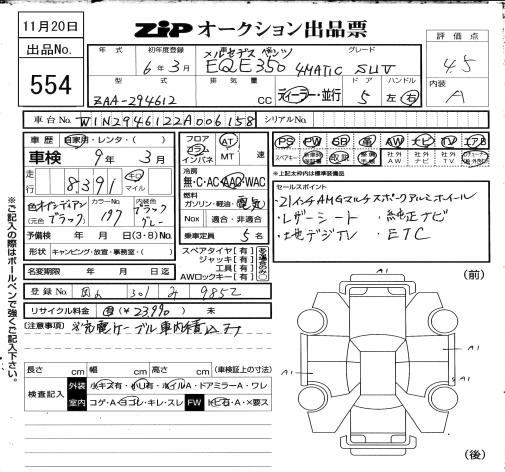 11月20日
出品No.
554
ZIP オークション出品票
年式 初年度登録 車名 グレード
6年3月 メルセデスベンツ EQE350 4MATIC SUV
型式 排気量 ドア ハンドル
ZAA-294612 cc ディーラー・並行 5 左・右
評価点
4.5
内装
A
車台No. W1N2946122A006158 シリアルNo.
車歴 自家用・レンタ・( )
車検 9年3月
走行 8,391 キロ マイル
色 オブシディアンブラック
(元色 ブラック)
カラーNo. 197
内装色 ブラック グレー
予備検 年 月 日 (3・8) No.
形状 キャンピング・放宣・事務室・( )
名変期限 年 月 日迄
登録No. 301 み 9852
リサイクル料金 有 (¥23,990) 未
(注意事項) ※充電ケーブル車内積込み
フロア コラム インパネ
AT
MT 速
冷房
無・C・AC・AAC・WAC
燃料
ガソリン・軽油・電気
Nox 適合・非適合
乗車定員 5名
スペアタイヤ[有]
ジャッキ[有]
工具[有]
AWロックキー[有]
PS PW SR 革 AW ナビ TV エアB
スペアキー 取説 社外AW 社外ナビ
※上記太枠内は標準装備品
セールスポイント
・21インチAMGマルチスポークアルミホイール
・レザーシート ・純正ナビ
・地デジTV ・ETC
長さ cm 幅 cm 高さ cm (車検証上の寸法)
検査記入
外装 小キズ有・小凹有・ホイルA・ドアミラーA・ワレ
室内 コゲ・A・ヨゴレ・キレ・スレ FW ト ビ石・A・×要ス
ご記入の際はボールペンで強くご記入下さい。
(前)
A1
A1
A1
A1
(後)